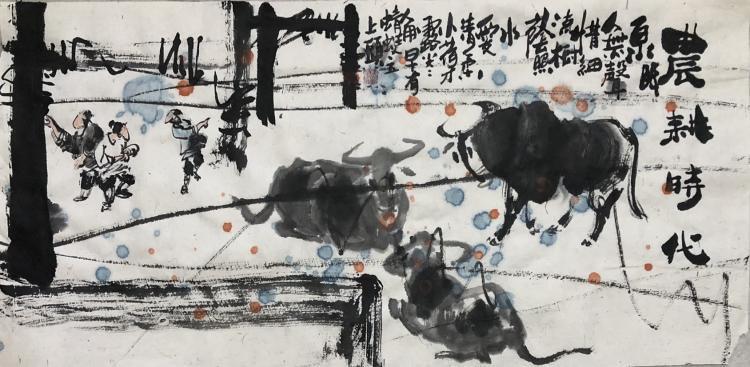 農耕時代
泉眼
無聲
惜細
流樹
陰照
水
愛
晴柔
小荷才
露尖尖
角早有
蜻蜓立
上頭